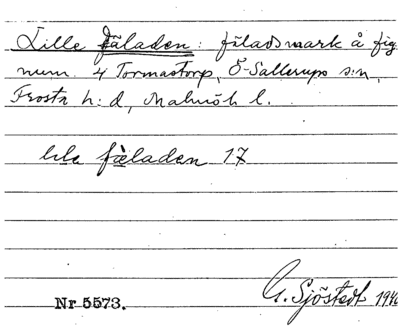 Lille fäladen: fäladsmark å fig.
num. 4 Tormastorp, Ö-Sallerups s:n,
Frosta h:d, Malmöh l.
lile fäladen 17
Nr 5573.
G. Sjöstedt 1946